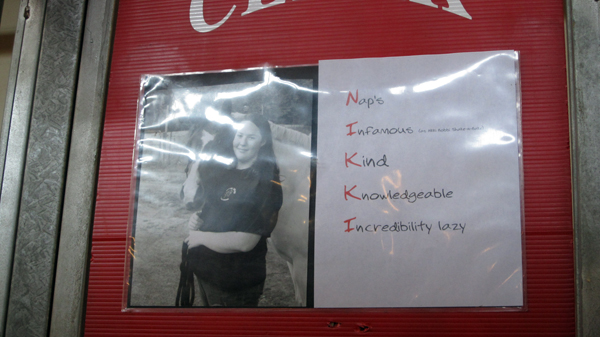 Nap's
Infamous
Kind
Knowledgeable
Incredibility lazy